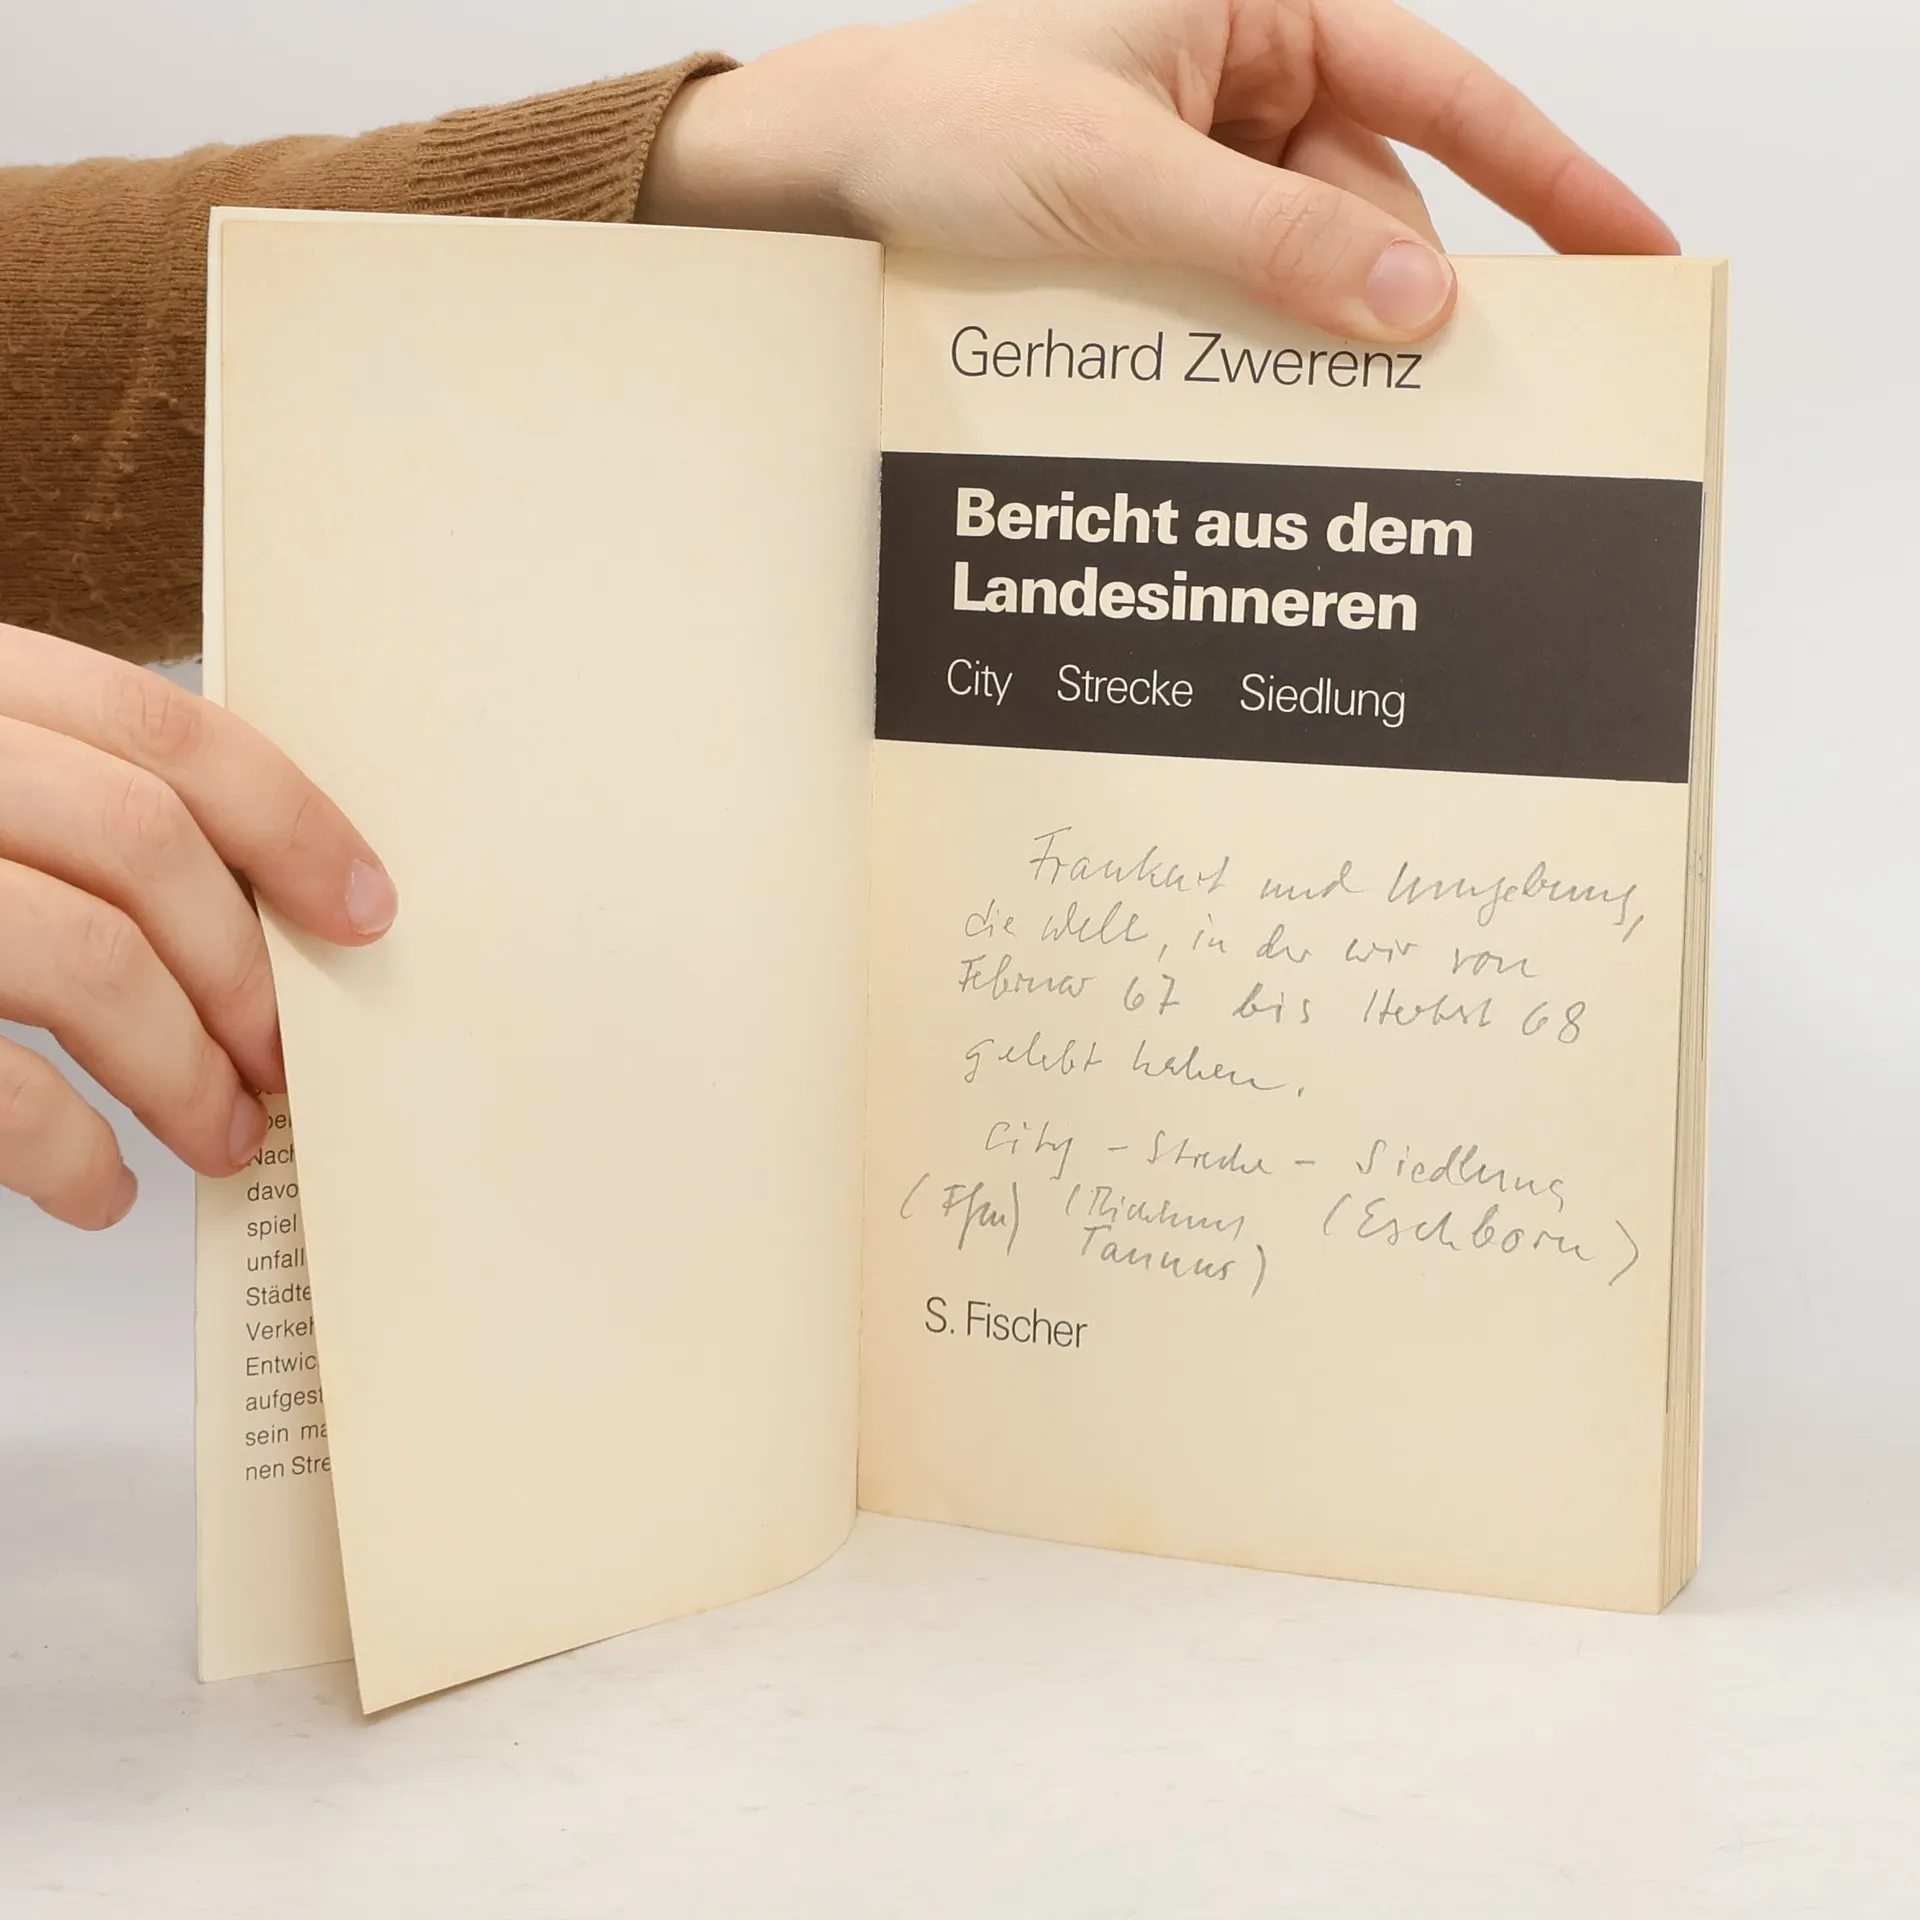 Gerhard Zwerenz
Bericht aus dem
Landesinneren
City Strecke Siedlung
Frankfurt und Umgebung,
die Welt, in der wir von
Februar 67 bis Herbst 68
gelebt haben.
City – Strecke – Siedlung
(Ffm) (Richtung (Eschborn)
Taunus)
S. Fischer
Nach
davo
spiel
unfall
Städte
Verkeh
Entwic
aufgest
sein ma
nen Stre